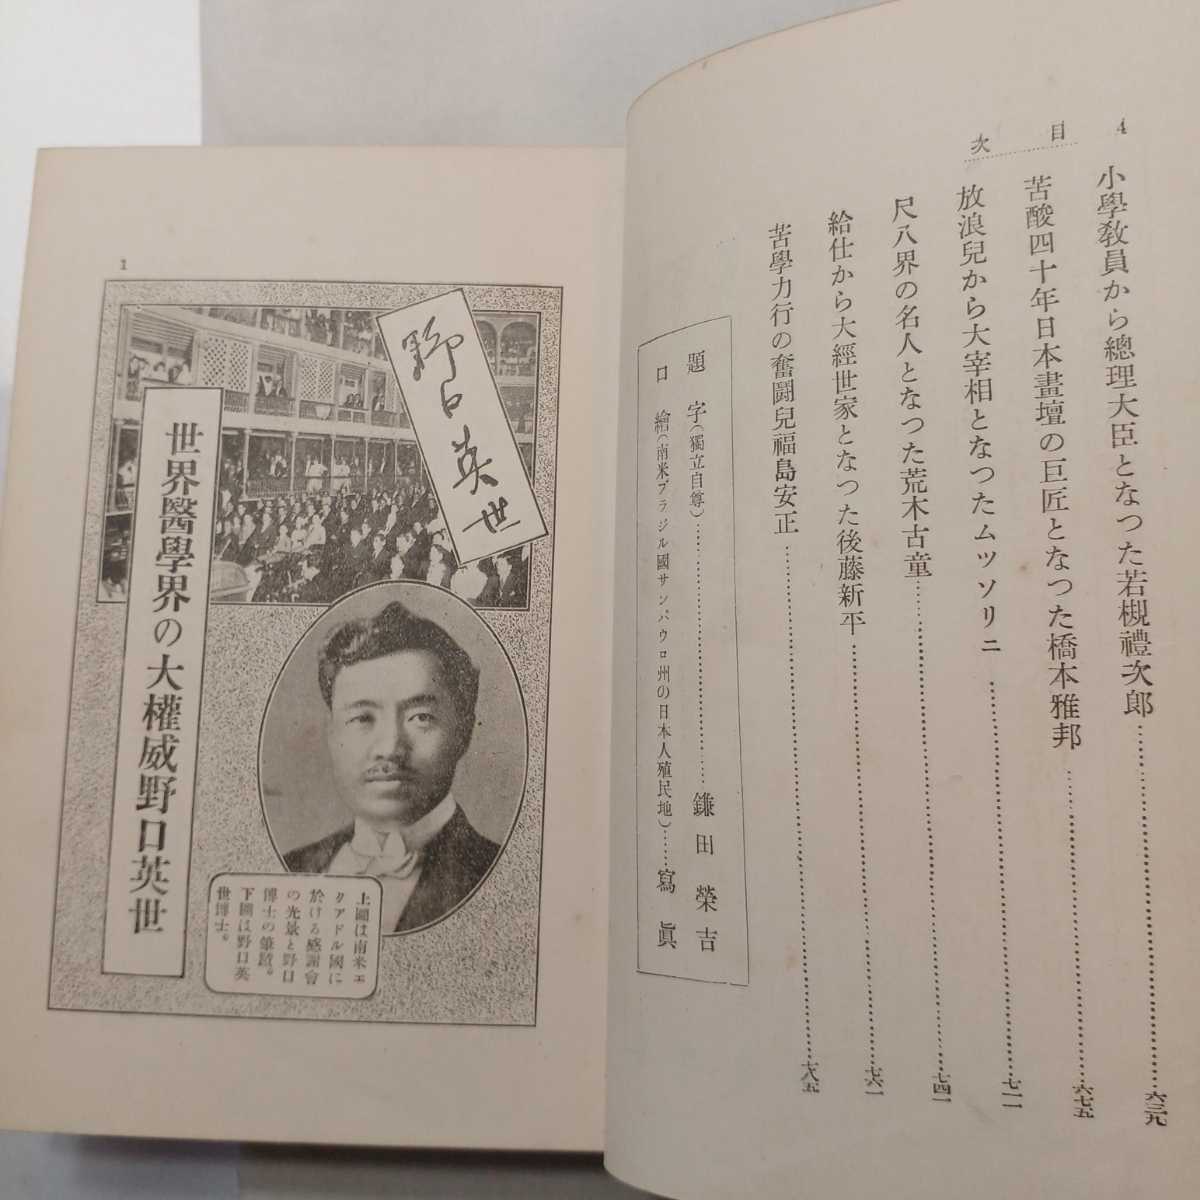 4
目次
小學敎員から總理大臣となつた若槻禮次郎………六三九
苦酸四十年日本畫壇の巨匠となつた橋本雅邦………六七五
放浪兒から大宰相となつたムツソリニ………七一一
尺八界の名人となつた荒木古童………七四一
給仕から大經世家となつた後藤新平………七六一
苦學力行の奮鬪兒福島安正………七八五
題字(獨立自尊)………鎌田榮吉
口繪(南米ブラジル國サンパウロ州の日本人殖民地)……寫眞
1
野口英世
世界醫學界の大權威野口英世
上圖は南米エ
クアドル國に
於ける感謝會
の光景と野口
博士の筆蹟。
下圖は野口英
世博士。